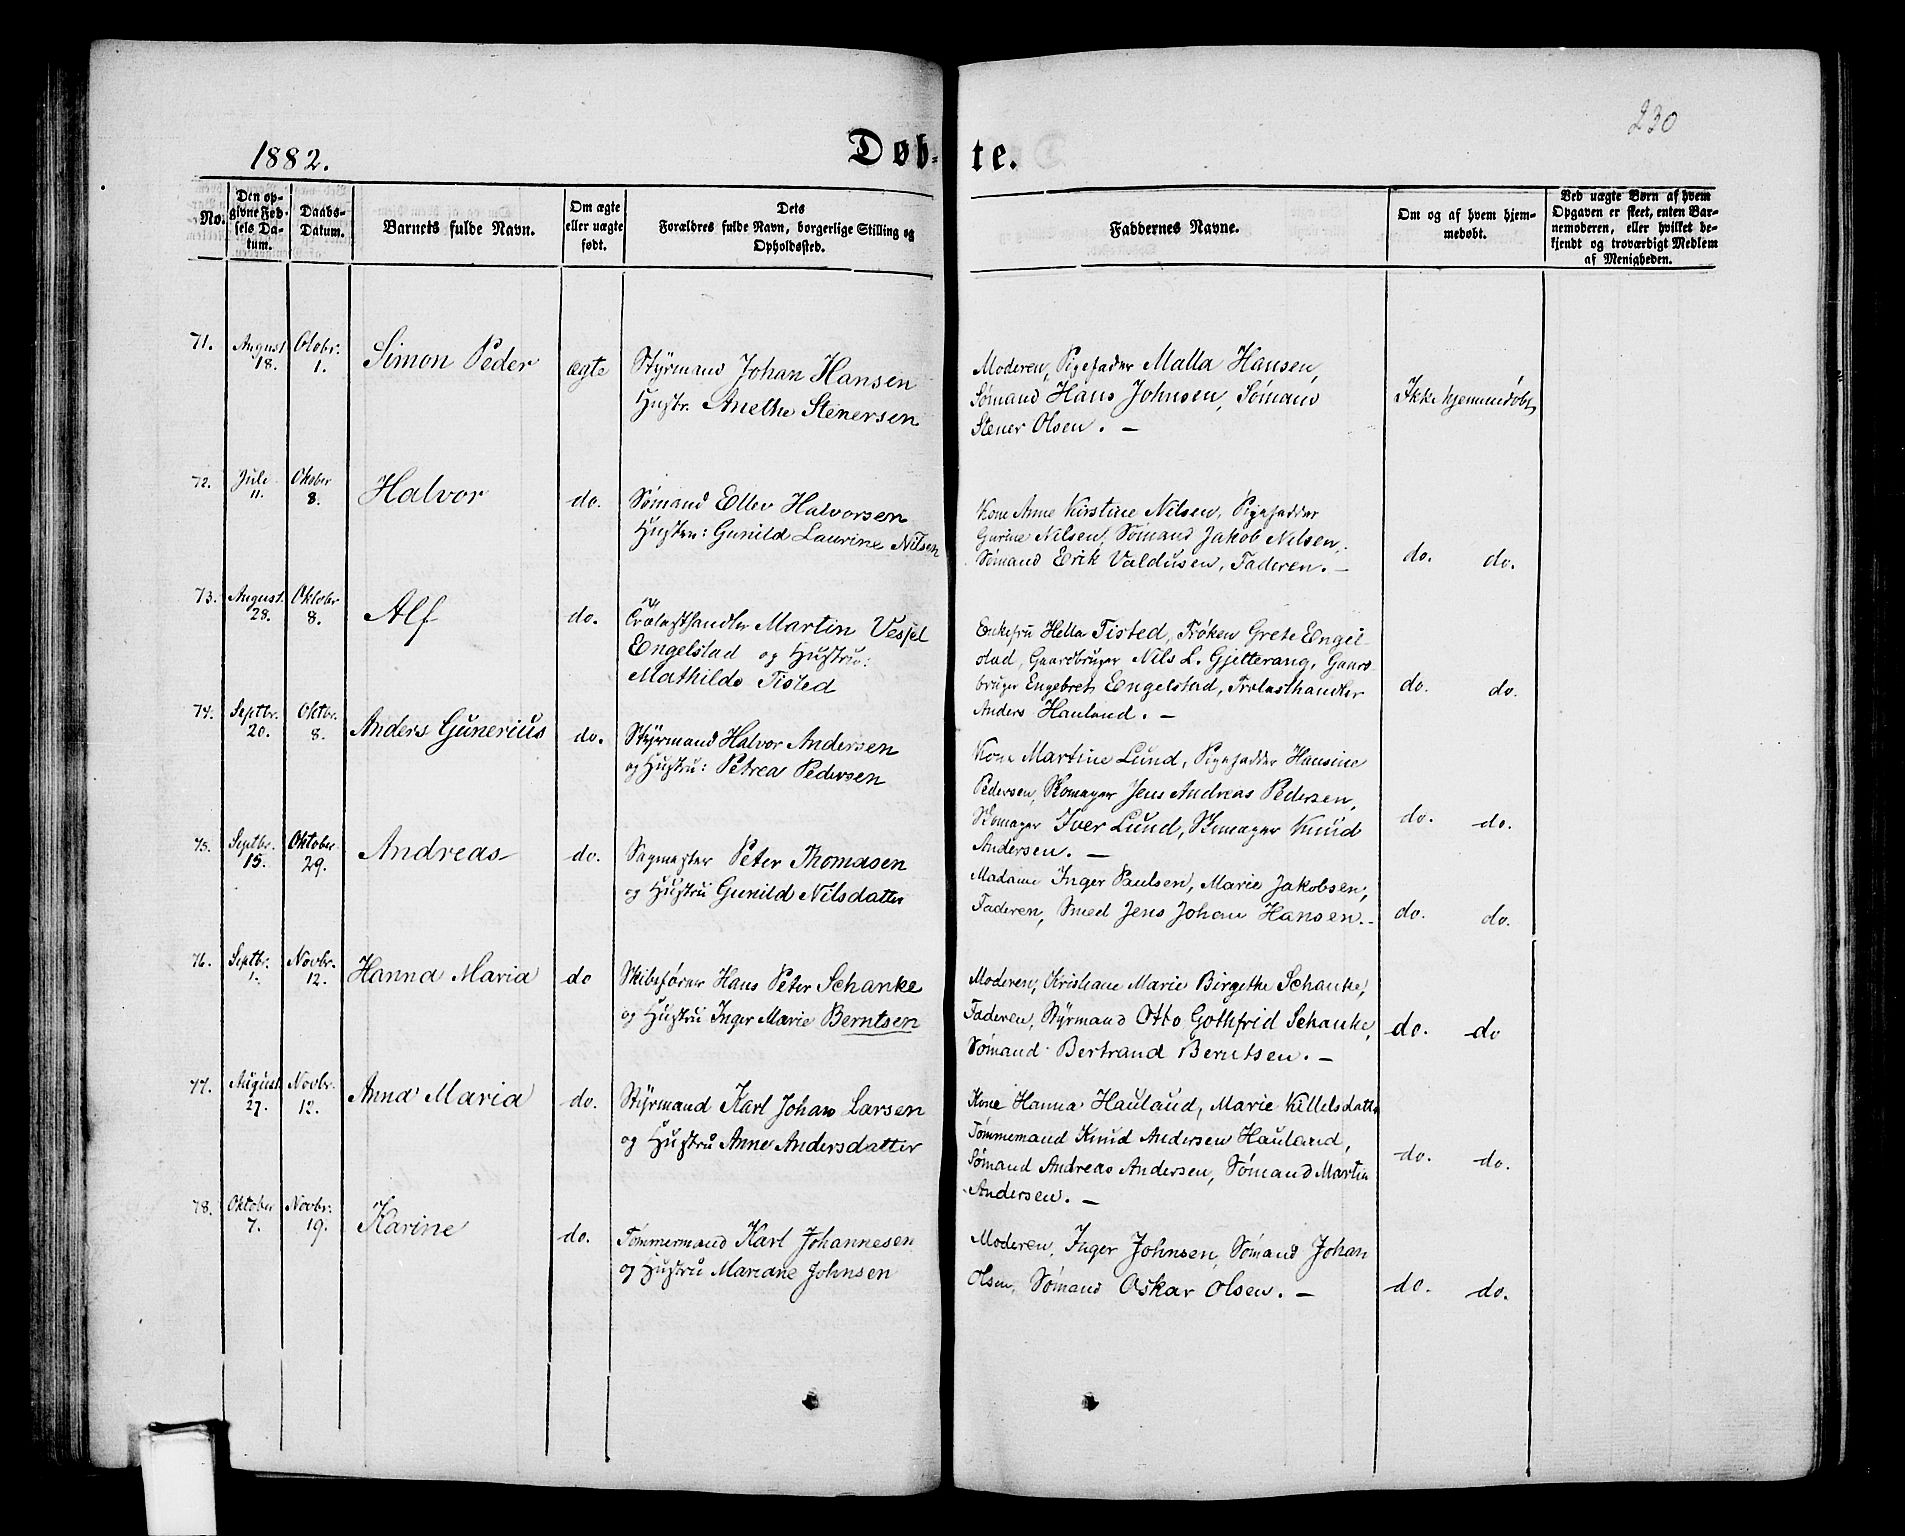 230
1882.
Døb-te.
No.
Den op-
givne Fød-
sels Da-
tum.
Daabs-
Datum.
Barnets fulde Navn.
Om ægte
eller uægte
født.
Dets
Forældres fulde Navn, borgerlige Stilling og
Opholdssted.
Faddernes Navne.
Om og af hvem hjem-
medøbt.
Ved uægte Børn af hvem
Opgaven er skeet, enten Bar-
nemoderen, eller hvilket be-
kjendt og troværdigt Medlem
af Menigheden.
71.
August
18.
Otobr.
1.
Simon Peder
ægte
Styrmand Johan Hansen
Hustr. Anethe Stenersen
Moderen, Pigefadder Malla Hansen,
Sømand Hans Johnsen, Sømand
Stener Olsen. —
Ikke hjemmedøbt
72.
Juli
11.
Oktober
8.
Halvor
do.
Sømand Ellev Halvorsen
Hustru: Gunild Laurine Nilsen
Kone Anne Kirstine Nilsen, Pigefadder
Gurine Nilsen, Sømand Jakob Nilsen,
Sømand Erik Valdusen, Faderen. —
do. do.
73.
August.
28.
Oktobr
8.
Alf
do.
Trælasthandler Martin Vessel
Engelstad og Hustru:
Mathilde Tisted
Enkefru Hella Tisted, Frøken Grete Engel-
stad, Gaardbruger Nils L. Gjitterang, Gaard-
bruger Engebret Engelstad, Trælasthandler
Anders Hauland. —
do. do.
74.
Septbr.
20.
Oktbr.
8.
Anders Gunerius
do.
Styrmand Halvor Andersen
og Hustru: Petrea Pedersen
Kone Martine Lund, Pigefadder Hansine
Pedersen, Skomager Jens Andreas Pedersen,
Skomager Iver Lund, Skomager Knud
Andersen. —
do. do.
75.
Septbr.
15.
Oktober
29.
Andreas
do.
Sagmester Peter Thomasen
og Hustru Gunild Nilsdatter
Madame Inger Paulsen, Marie Jakobsen,
Faderen, Smed Jens Johan Hansen. -
do. do.
76.
Septbr.
1.
Novbr.
12.
Hanna Maria
do
Skibsfører Hans Peter Schanke
og Hustru Inger Marie Berntsen
Moderen, Kristiane Marie Birgethe Schanke,
Faderen, Styrmand Otto Gothfrid Schanke,
Sømand Bertrand Berntsen. —
do. do
77.
August
27.
Novbr.
12.
Anna Maria
do.
Styrmand Karl Johan Larsen
og Hustru Anne Andersdatter
Kone Hanna Hauland, Marie Killelsdatter
Tømmemand Knud Andersen Hauland,
Sømand Andreas Andersen, Sømand Martin
Andersen. —
do. do.
78.
Oktober
7.
Novbr.
19.
Karine
do.
Tømmermand Karl Johannesen
og Hustru Mariane Johnsen
Moderen, Inger Johnsen, Sømand Johan
Olsen, Sømand Oskar Olsen. —
do. do.